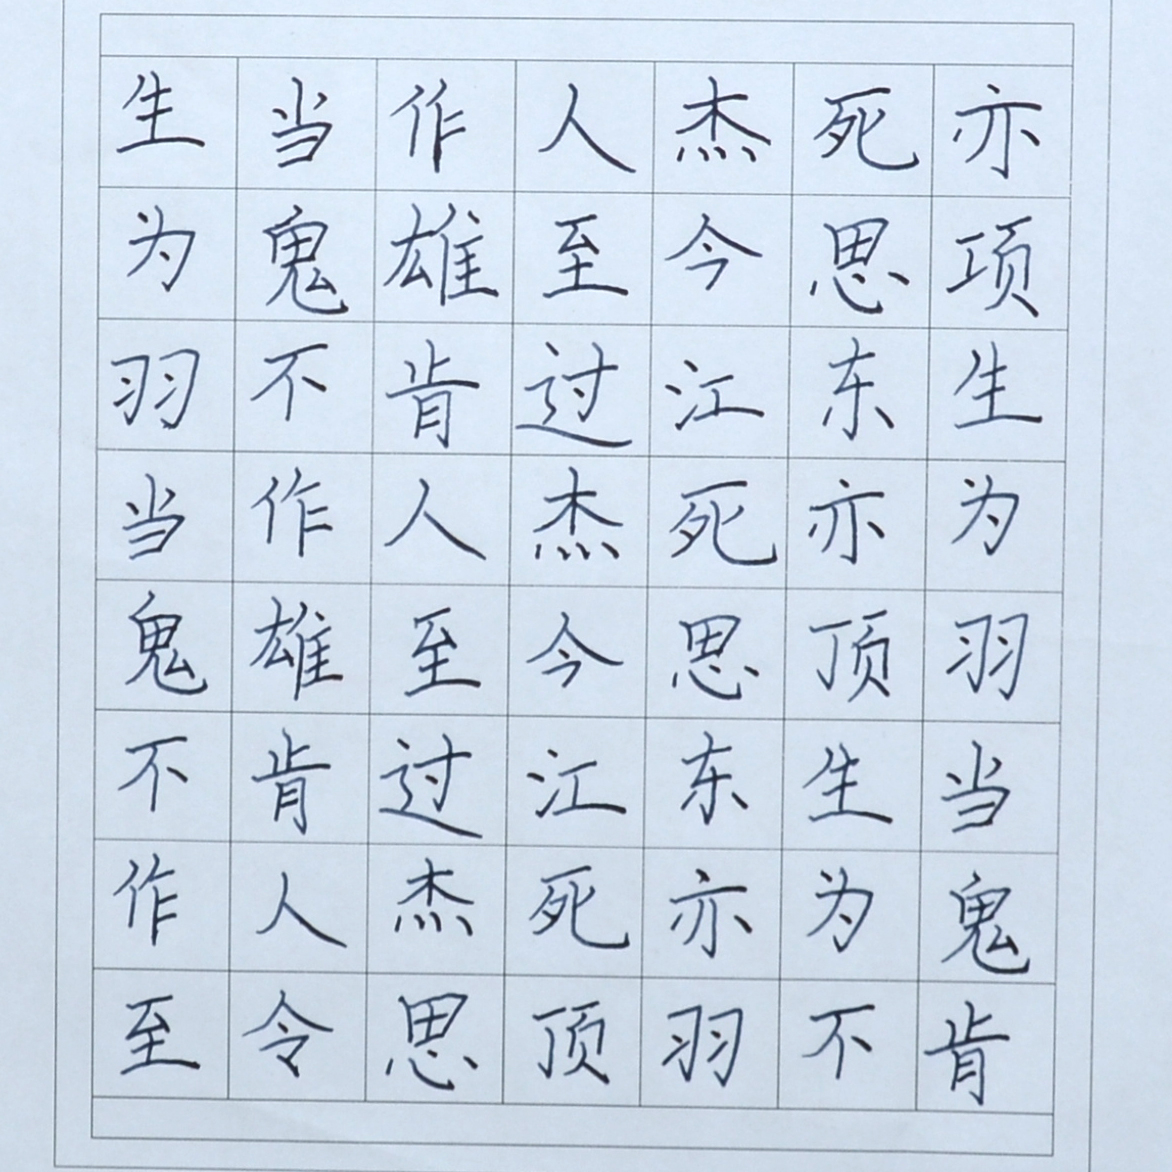 生当作人杰死亦
为鬼雄至今思项
羽不肯过江东生
当作人杰死亦为
鬼雄至今思顶羽
不肯过江东生当
作人杰死亦为鬼
至令思顶羽不肯